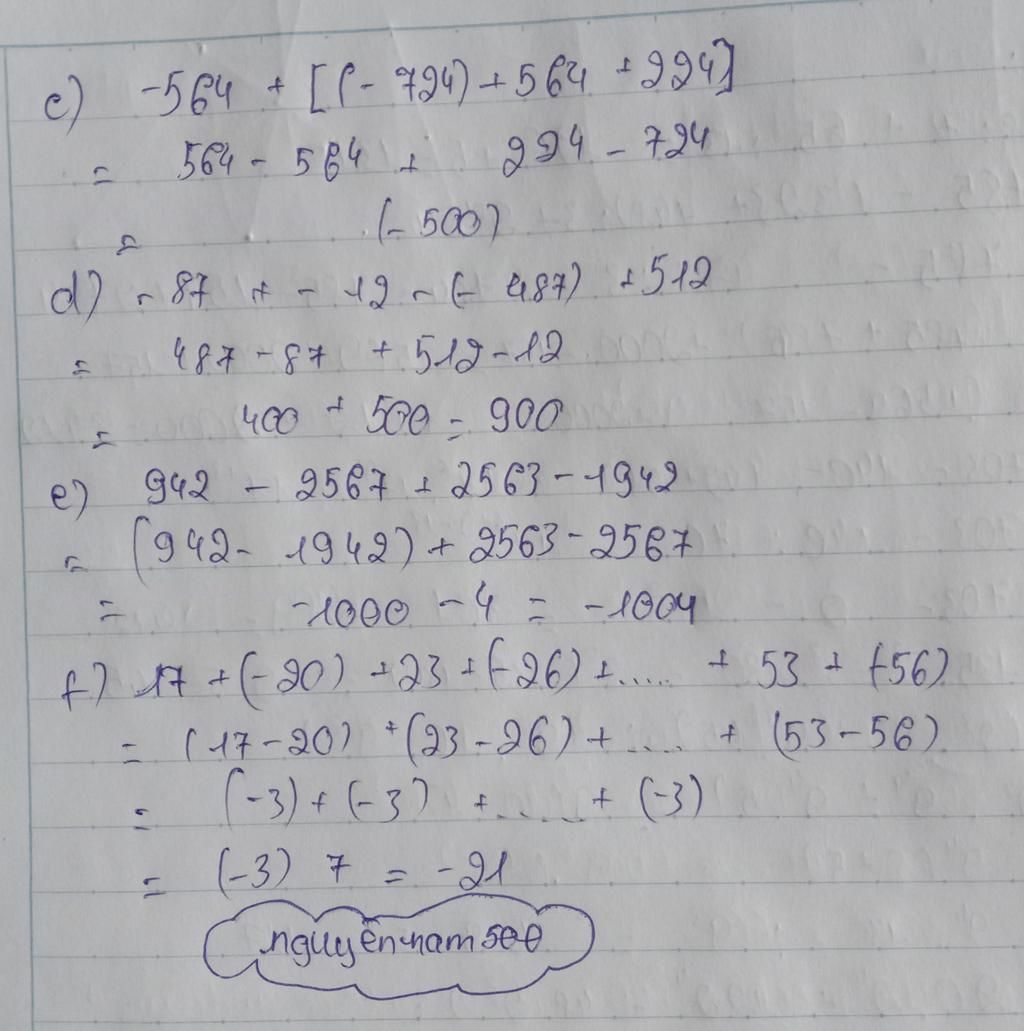 c) -564 + [(-724) + 564 + 224]
= 564 - 564 + 224 - 724
= (-500)
d) -87 + -12 - (-487) + 512
= 487 - 87 + 512 - 12
= 400 + 500 = 900
e) 942 - 2567 + 2563 - 1942
= (942 - 1942) + 2563 - 2567
= -1000 - 4 = -1004
f) 17 + (-20) + 23 + (-26) + ..... + 53 + (-56)
= (17 - 20) + (23 - 26) + .... + (53 - 56)
= (-3) + (-3) + ...... + (-3)
= (-3) 7 = -21
nguyennam500